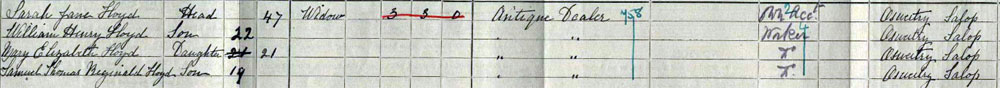 Sarah Jane Floyd Head 47 Widow 3 3 0 Antique Dealer 458 Oswestry Salop
William Henry Floyd Son 22 " " Worker Oswestry Salop
Mary Elizabeth Floyd Daughter 21 21 " " Oswestry Salop
Samuel Thomas Reginald Floyd Son 19 " " Oswestry Salop